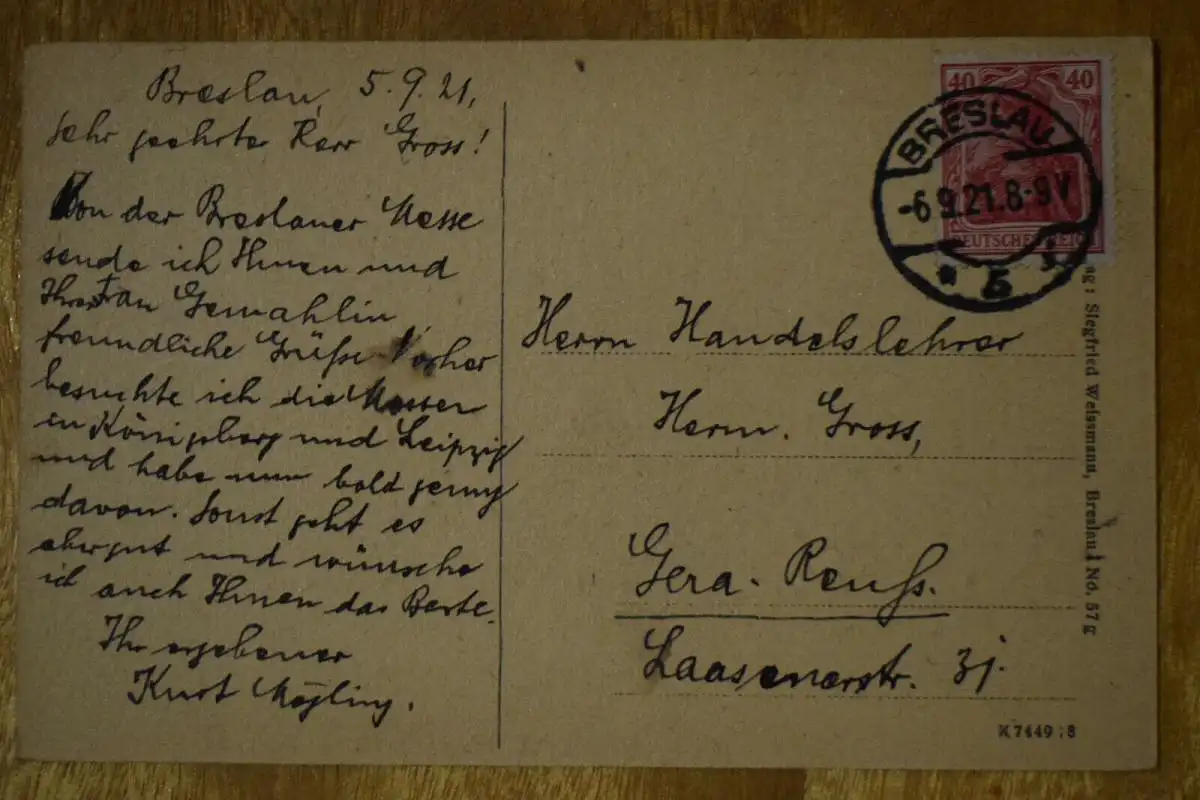 Breslau, 5.9.21,
Sehr geehrter Herr Gross!
Von der Breslauer Messe
sende ich Ihnen und
Ihrer Frau Gemahlin
freundliche Grüße. Vorher
besuchte ich die Messen
in Königsberg und Leipzig
und habe nun bald genug
davon. Sonst geht es
aber gut und wünsche
ich auch Ihnen das Beste.
Ihr ergebener
Kurt
40 40
DEUTSCHES REICH
BRESLAU
-6.9.21.8-9V
* 5
Herrn Handelslehrer
Herm. Gross,
Gera-Reuß.
Laasenerstr.
ag: Siegfried Weissmann, Breslau I No. 57g
K 7449:8